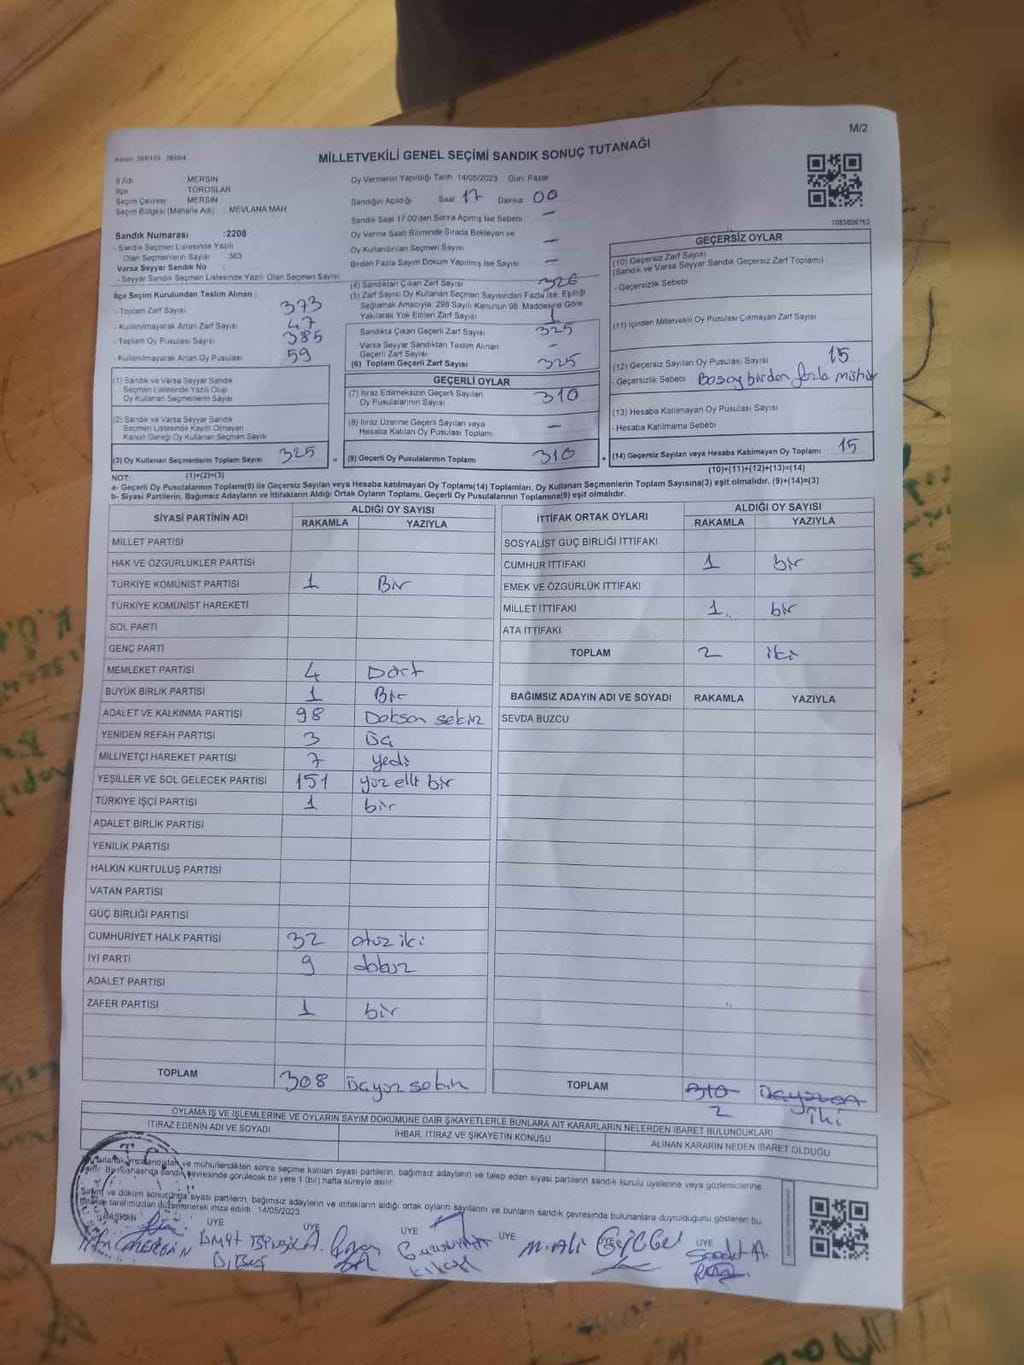 M/2
Karar: 29/6105 - 2810/4
MİLLETVEKİLİ GENEL SEÇİMİ SANDIK SONUÇ TUTANAĞI
İl Adı MERSİN
İlçe TOROSLAR
Seçim Çevresi MERSİN
Seçim Bölgesi (Mahalle Adı) : MEVLANA MAH
Sandık Numarası :2208
- Sandık Seçmen Listesinde Yazılı
Olan Seçmenlerin Sayısı 363
Varsa Seyyar Sandık No :
- Seyyar Sandık Seçmen Listesinde Yazılı Olan Seçmen Sayısı
İlçe Seçim Kurulundan Teslim Alınan ;
- Toplam Zarf Sayısı 373
- Kullanılmayarak Artan Zarf Sayısı 47
- Toplam Oy Pusulası Sayısı 385
- Kullanılmayarak Artan Oy Pusulası 59
(1) Sandık ve Varsa Seyyar Sandık
Seçmen Listesinde Yazılı Olup
Oy Kullanan Seçmenlerin Sayısı
(2) Sandık ve Varsa Seyyar Sandık
Seçmen Listesinde Kayıtlı Olmayan
Kanun Gereği Oy Kullanan Seçmen Sayısı
(3) Oy Kullanan Seçmenlerin Toplam Sayısı 325
Oy Vermenin Yapıldığı Tarih 14/05/2023 Gün: Pazar
Sandığın Açıldığı Saat 17 Dakika: 00
Sandık Saat 17:00'den Sonra Açılmış İse Sebebi —
Oy Verme Saati Bitiminde Sırada Bekleyen ve
Oy Kullandırılan Seçmen Sayısı —
Birden Fazla Sayım Döküm Yapılmış İse Sayısı —
(4) Sandıktan Çıkan Zarf Sayısı 326
(5) Zarf Sayısı Oy Kullanan Seçmen Sayısından Fazla İse, Eşitliği
Sağlamak Amacıyla, 298 Sayılı Kanunun 98. Maddesine Göre
Yakılarak Yok Edilen Zarf Sayısı 1
Sandıkta Çıkan Geçerli Zarf Sayısı 325
Varsa Seyyar Sandıktan Teslim Alınan
Geçerli Zarf Sayısı —
(6) Toplam Geçerli Zarf Sayısı 325
GEÇERLİ OYLAR
(7) İtiraz Edilmeksizin Geçerli Sayılan
Oy Pusulalarının Sayısı 310
(8) İtiraz Üzerine Geçerli Sayılan veya
Hesaba Katılan Oy Pusulası Toplamı —
(9) Geçerli Oy Pusulalarının Toplamı 310
1053809762
GEÇERSİZ OYLAR
(10) Geçersiz Zarf Sayısı
(Sandık ve Varsa Seyyar Sandık Geçersiz Zarf Toplamı)
- Geçersizlik Sebebi
(11) İçinden Milletvekili Oy Pusulası Çıkmayan Zarf Sayısı
(12) Geçersiz Sayılan Oy Pusulası Sayısı 15
- Geçersizlik Sebebi birden fazla mühür
(13) Hesaba Katılmayan Oy Pusulası Sayısı
- Hesaba Katılmama Sebebi
(14) Geçersiz Sayılan veya Hesaba Katılmayan Oy Toplamı 15
NOT: (1)+(2)=(3) (10)+(11)+(12)+(13)=(14)
a- Geçerli Oy Pusulalarının Toplamı(9) ile Geçersiz Sayılan veya Hesaba katılmayan Oy Toplamı(14) Toplamları, Oy Kullanan Seçmenlerin Toplam Sayısına(3) eşit olmalıdır. (9)+(14)=(3)
b- Siyasi Partilerin, Bağımsız Adayların ve İttifakların Aldığı Ortak Oyların Toplamı, Geçerli Oy Pusulalarının Toplamına(9) eşit olmalıdır.
SİYASİ PARTİNİN ADI ALDIĞI OY SAYISI
RAKAMLA YAZIYLA
MİLLET PARTİSİ
HAK VE ÖZGÜRLÜKLER PARTİSİ
TÜRKİYE KOMÜNİST PARTİSİ 1 Bir
TÜRKİYE KOMÜNİST HAREKETİ
SOL PARTİ
GENÇ PARTİ
MEMLEKET PARTİSİ 4 Dört
BÜYÜK BİRLİK PARTİSİ 1 Bir
ADALET VE KALKINMA PARTİSİ 98 Doksan sekiz
YENİDEN REFAH PARTİSİ 3 Üç
MİLLİYETÇİ HAREKET PARTİSİ 7 yedi
YEŞİLLER VE SOL GELECEK PARTİSİ 151 yüz elli bir
TÜRKİYE İŞÇİ PARTİSİ 1 bir
ADALET BİRLİK PARTİSİ
YENİLİK PARTİSİ
HALKIN KURTULUŞ PARTİSİ
VATAN PARTİSİ
GÜÇ BİRLİĞİ PARTİSİ
CUMHURİYET HALK PARTİSİ 32 otuz iki
İYİ PARTİ 9 dokuz
ADALET PARTİSİ
ZAFER PARTİSİ 1 bir
TOPLAM 308 Üçyüz sekiz
İTTİFAK ORTAK OYLARI ALDIĞI OY SAYISI
RAKAMLA YAZIYLA
SOSYALİST GÜÇ BİRLİĞİ İTTİFAKI
CUMHUR İTTİFAKI 1 bir
EMEK VE ÖZGÜRLÜK İTTİFAKI
MİLLET İTTİFAKI 1 bir
ATA İTTİFAKI
TOPLAM 2 iki
BAĞIMSIZ ADAYIN ADI VE SOYADI RAKAMLA YAZIYLA
SEVDA BUZCU
TOPLAM 310 Üçyüzon
2 İki
OYLAMA İŞ VE İŞLEMLERİNE VE OYLARIN SAYIM DÖKÜMÜNE DAİR ŞİKAYETLERLE BUNLARA AİT KARARLARIN NELERDEN İBARET BULUNDUKLARI
İTİRAZ EDENİN ADI VE SOYADI İHBAR, İTİRAZ VE ŞİKAYETİN KONUSU ALINAN KARARIN NEDEN İBARET OLDUĞU
ve mühürlendikten sonra seçime katılan siyasi partilerin, bağımsız adayların ve talep eden siyasi partilerin sandık kurulu üyelerine veya gözlemcilerine
sandık çevresinde görülecek bir yere 1 (bir) hafta süreyle asılır.
ve döküm sonucunda siyasi partilerin, bağımsız adayların ve ittifakların aldığı ortak oyların sayılarını ve bunların sandık çevresinde bulunanlara duyrulduğunu gösteren bu
tarafımızdan düzenlenerek imza edildi. 14/05/2023
BAŞKAN ÜYE ÜYE ÜYE ÜYE ÜYE ÜYE
M.Ali